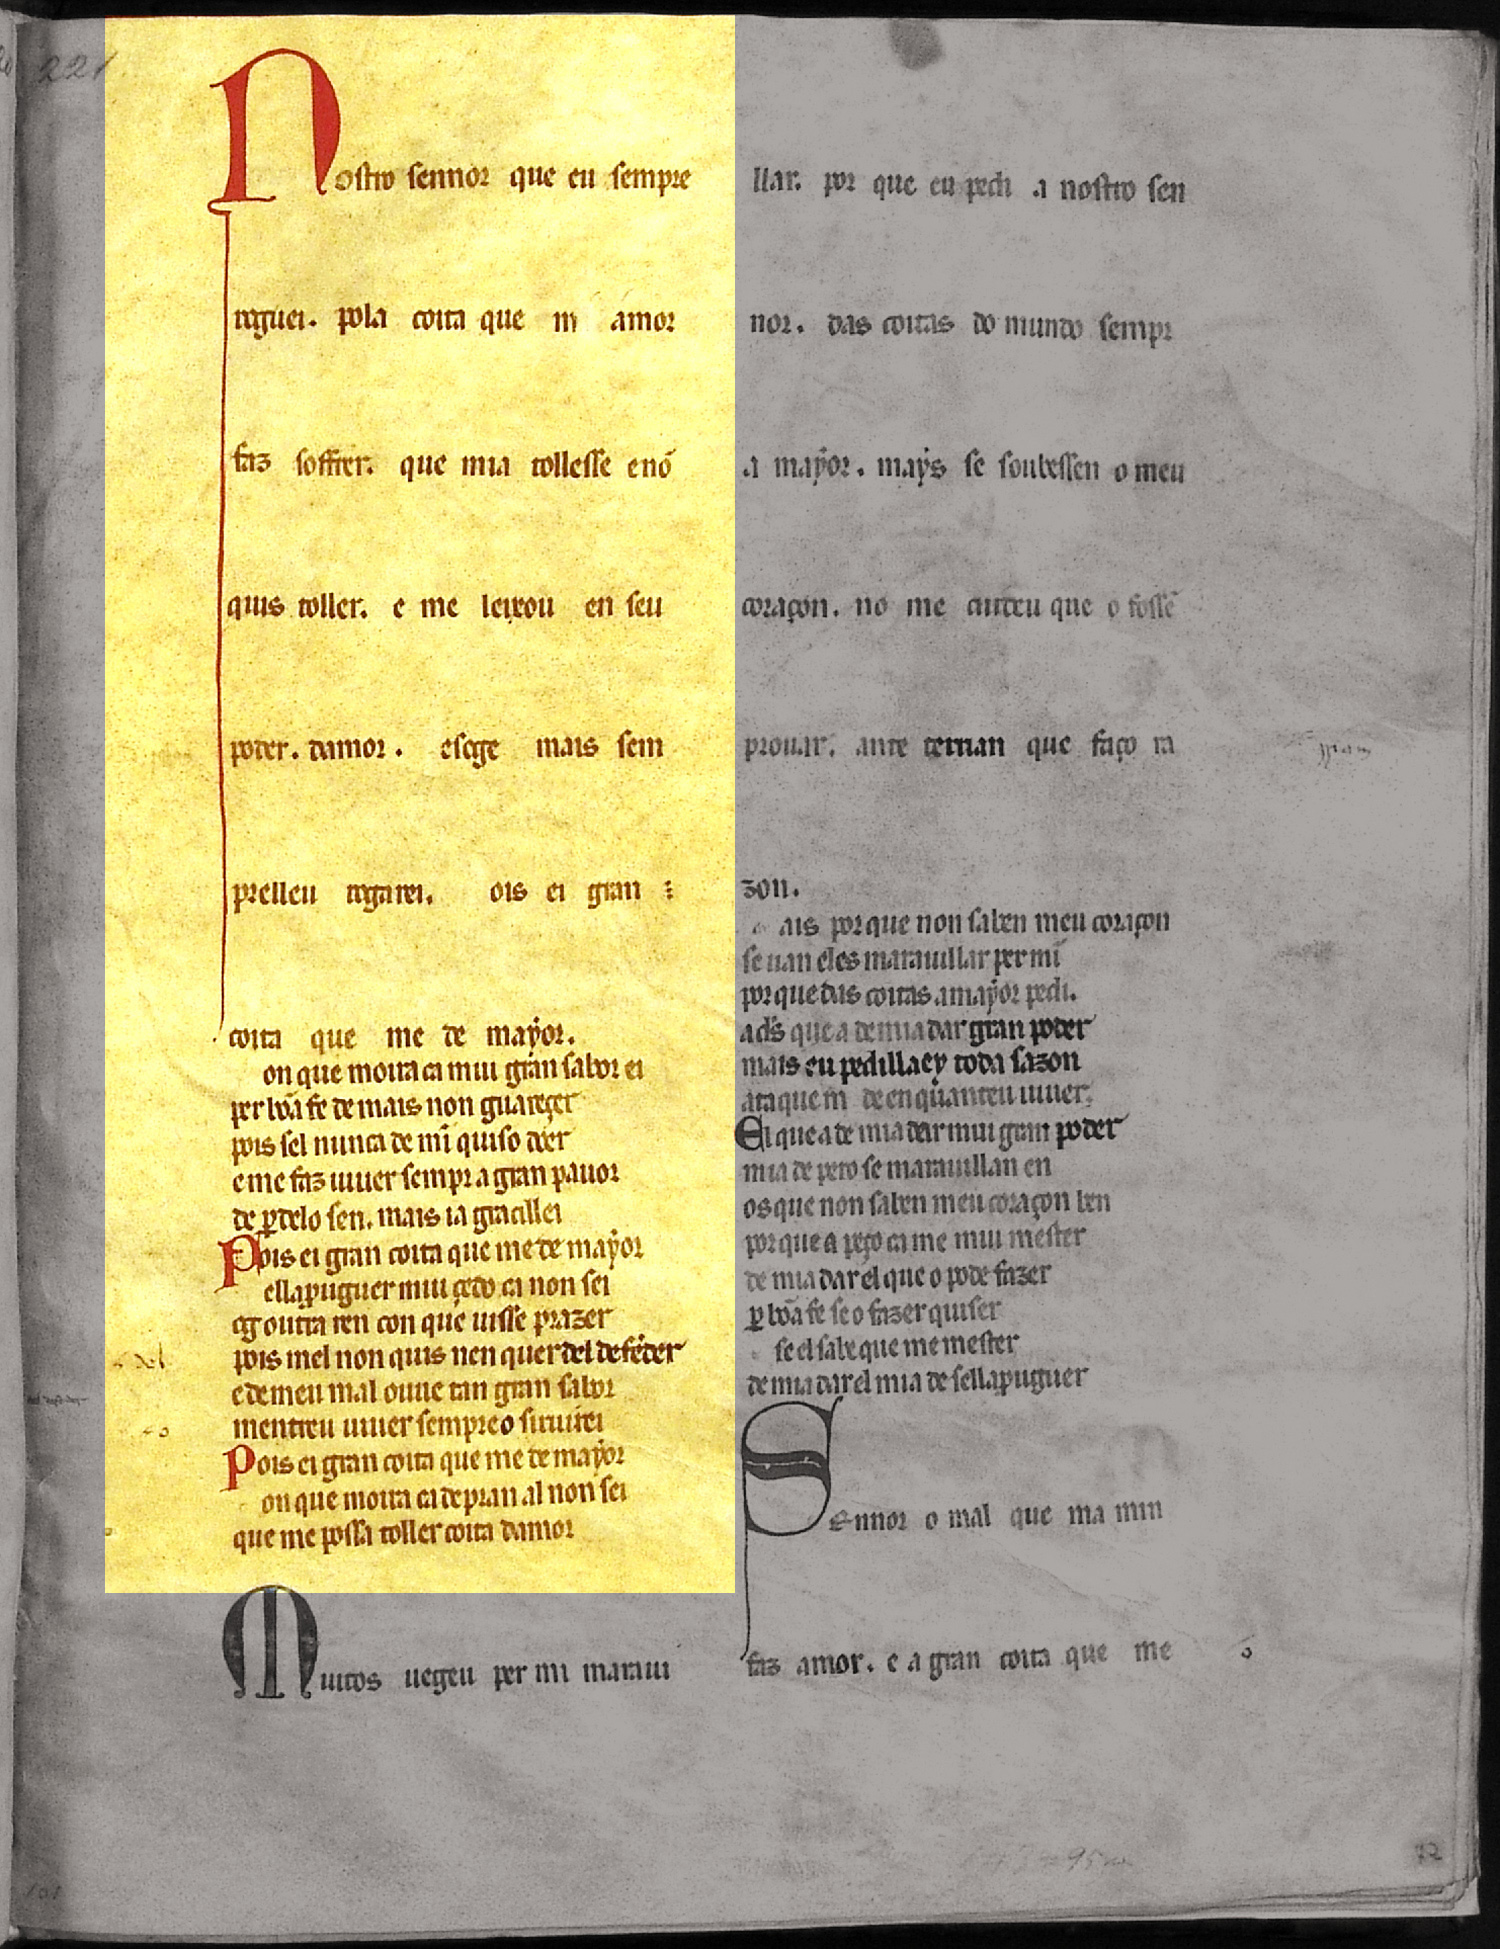 221
Nostro sennor que eu sempre
roguei. pola coita que m amor
faz soffrer. que mia tollesse enõ
quis toller. e me leixou en seu
poder. damor. esege mais sem
prelleu rogarei. ois ei gran
coita que me de mayor.
on que moira ca mui gran sabor ei
per bõa fe de mais non guareçer
pois sel nunca de mi quiso doer
e me faz uiuer sempr a gran pauor
de ꝑdelo sen. mais ia graçillei
Pois ei gran coita que me de mayor
ellaꝓuguer mui çedo ca non sei
og outra ren con que uisse prazer
pois mel non quis nen quer del defẽder
e de meu mal ouue tan gran sabor
mentreu uiuer sempreo siruirei
Pois ei gran coita que me de mayor
on que moira ca de pran al non sei
que me possa toller coita damor
Muitos uegeu per mi maraui
llar. por que eu pedi a nostro sen
nor. das coitas do mundo sempr
a mayor. mays se soubessen o meu
coraçon. no me cuideu que o fossẽ
prouar. ante terrian que faço ra
zon.
ais porque non saben meu coraçon
se uan eles marauillar per mi
porque das coitas amayor pedi.
ads̃ que a de mia dar gran poder
mais eu pedillaey toda sazon
ataque m de enquanteu uiuer,
El que a de mia dar mui gran poder
mia de pero se marauillan en
os que non saben meu coraçon ben
porque a peço ca me mui mester
de mia dar el que o pode fazer
ꝑ bõa fe se o fazer quiser
se el sabe que me mester
de mia dar el mia de sellaꝓuguer
Sennor o mal que ma min
faz amor. e a gran coita que me
72